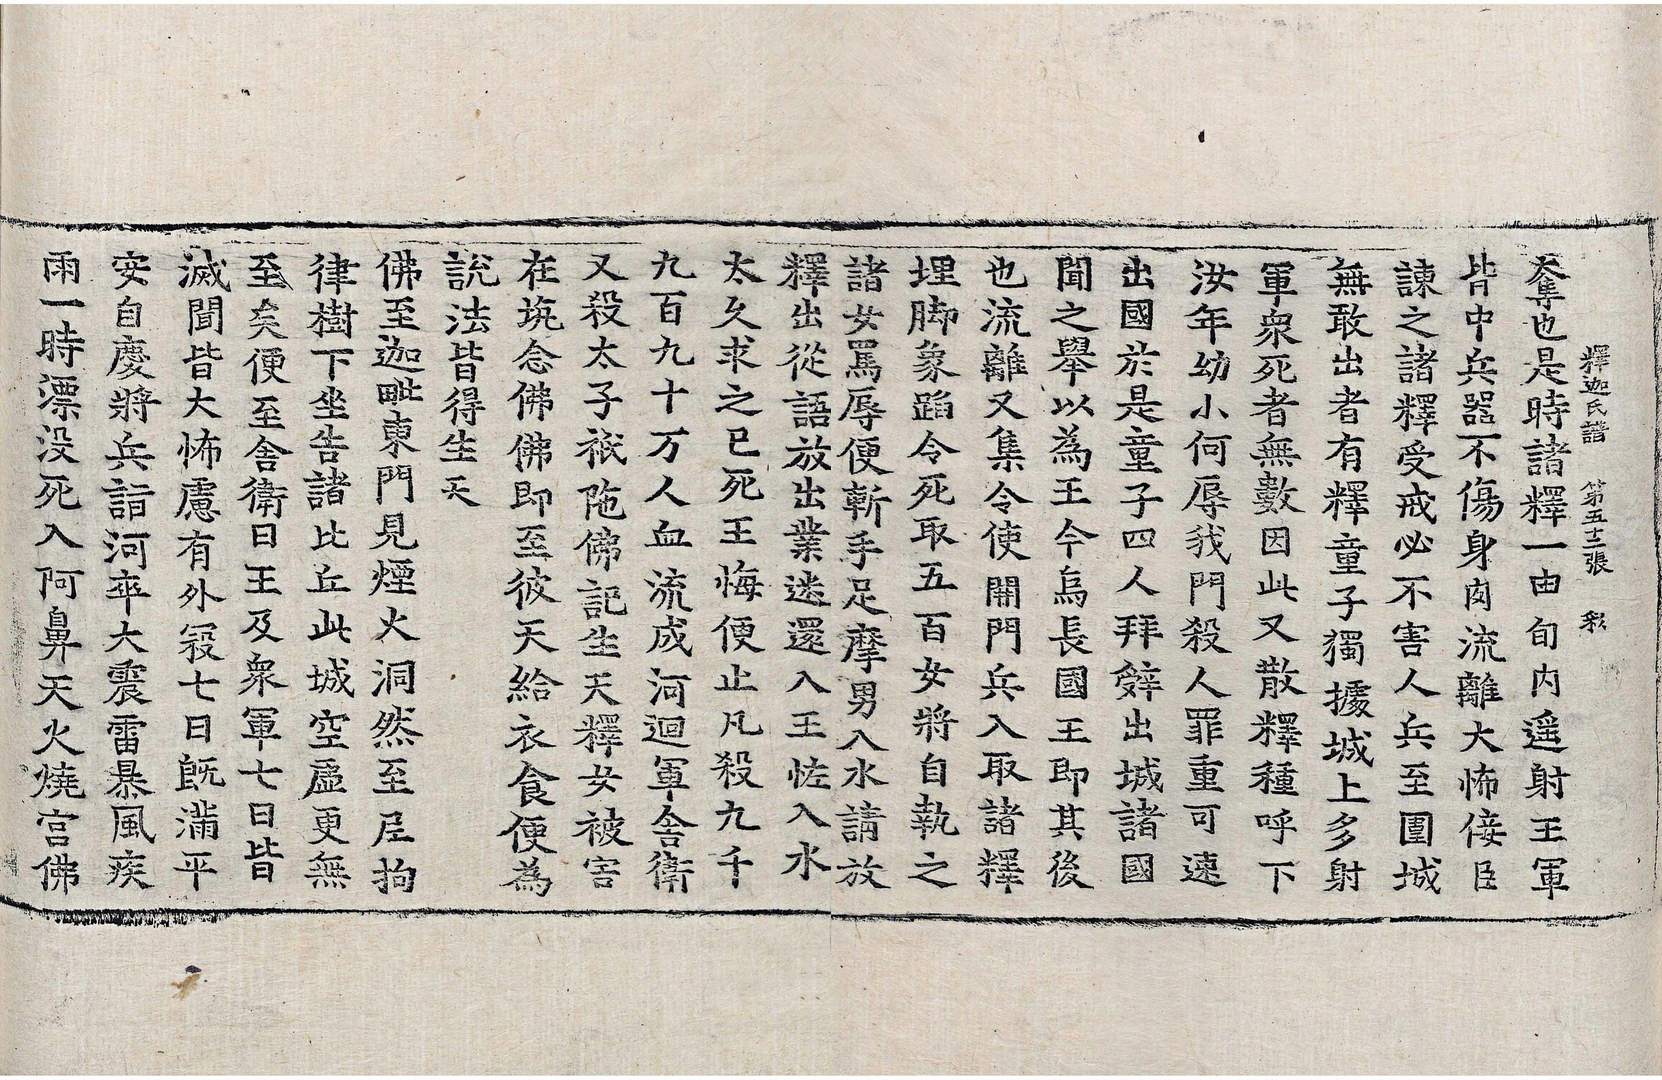 釋迦氏譜 第五十二張 彩
奪也是時諸釋一由旬內遥射王軍
皆中兵噐不傷身肉流離大怖佞臣
諫之諸釋受戒必不害人兵至圍城
無敢出者有釋童子獨據城上多射
軍衆死者無數因此又散釋種呼下
汝年幼小何辱我門殺人罪重可速
出國於是童子四人拜辤出城諸國
聞之舉以為王今烏長國王即其後
也流離又集令使開門兵入取諸釋
埋脚象蹈令死取五百女將自執之
諸女罵辱便斬手足摩男入水請放
釋出從語放出業迷還入王恠入水
太久求之已死王悔便止凡殺九千
九百九十万人血流成河迴軍舍衛
又殺太子祇陁佛記生天釋女被害
在坑念佛佛即至彼天給衣食便為
說法皆得生天
佛至迦毗東門見煙火洞然至尼拘
律樹下坐告諸比丘此城空虛更無
至矣便至舍衛曰王及衆軍七日皆
滅聞皆大怖慮有外冦七日既滿平
安自慶將兵詣河卒大震雷暴風疾
雨一時漂没死入阿鼻天火燒宫佛